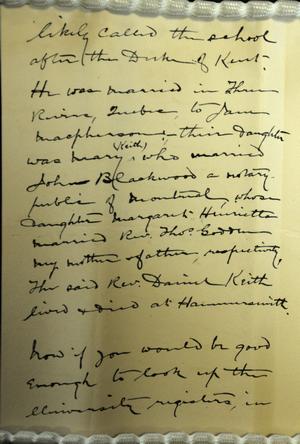 likely called the school
after the Duke of Kent.
He was married in Three
Rivers, Quebec, to Jane
Macpherson; their daughter
was Mary (Keith), who married
John Blackwood a notary-
public of Montreal, whose
daughter Margaret Henrietta
married Rev. Thos. Godden
my mother & father, respectively,
The said Rev. Daniel Keith
lived & died at Hammersmith.
Now if you would be good
enough to look up the
University registers, in